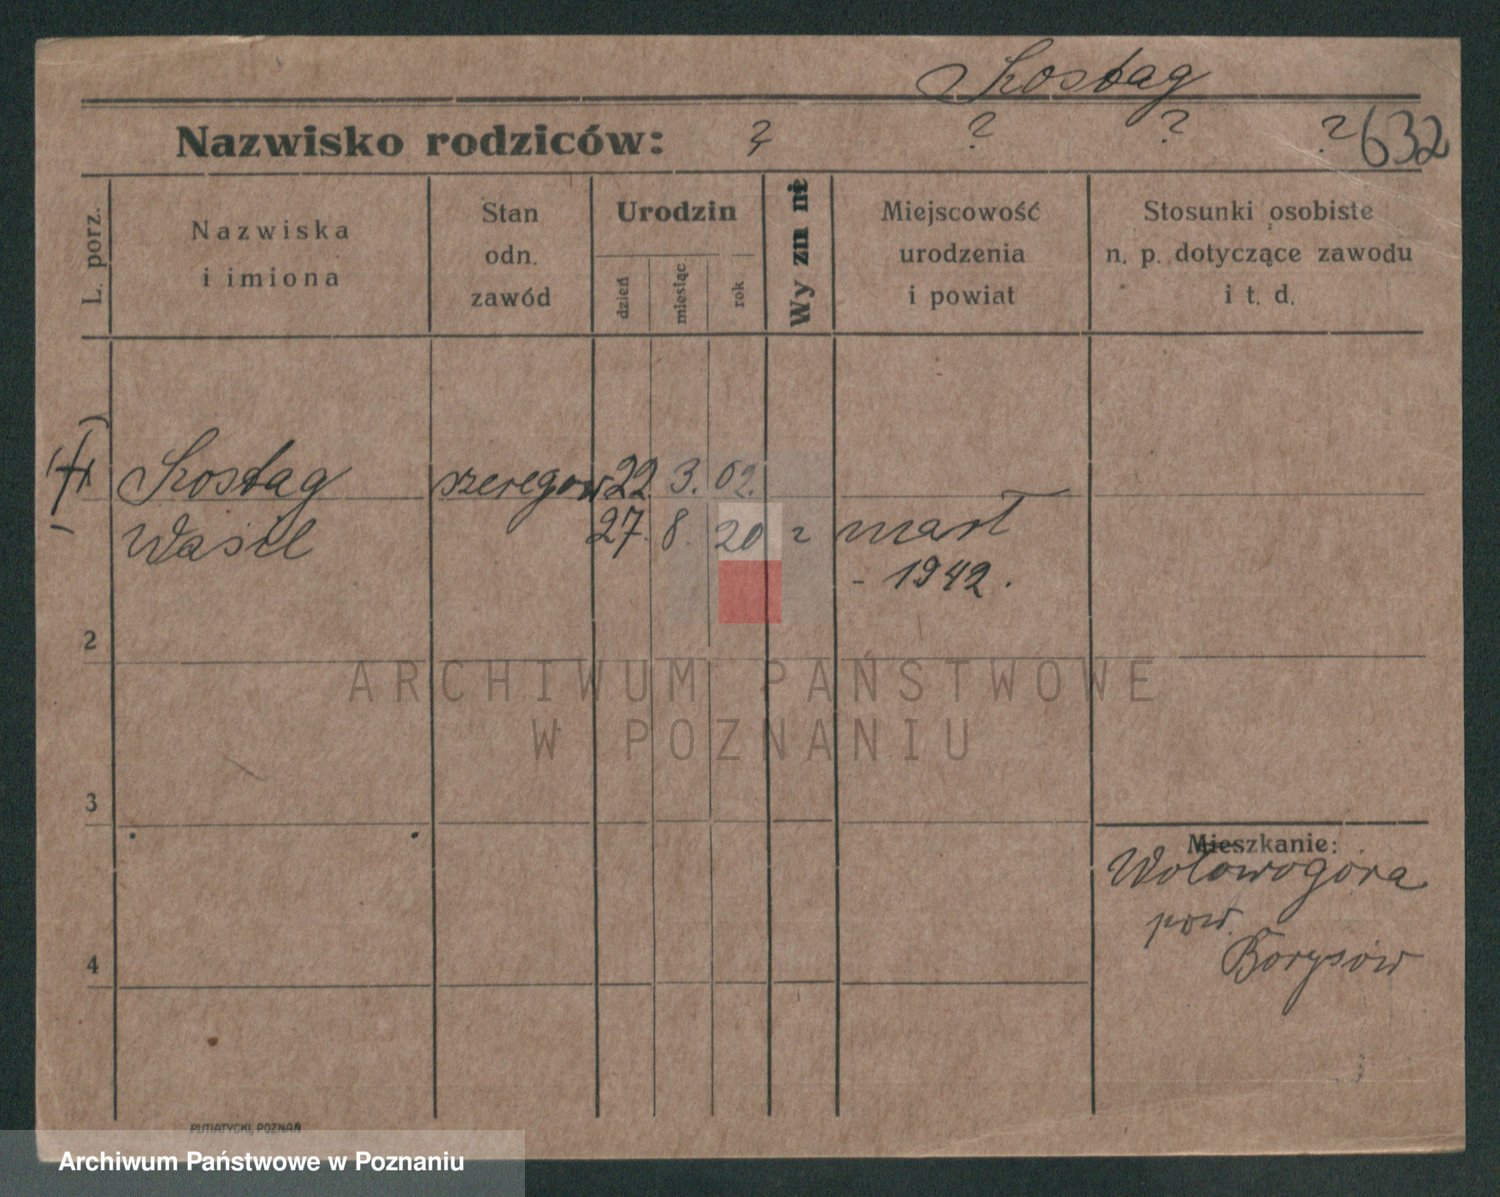 Kostag
Nazwisko rodziców: ? ? ? ? 632
L. porz.
Nazwiska
i imiona
Stan
odn.
zawód
Urodzin
dzień
miesiąc
rok
Wy zn ni
Miejscowość
urodzenia
i powiat
Stosunki osobiste
n. p. dotyczące zawodu
i t. d.
Kostag szeregow 22. 3. 02.
Wasil 27. 8. 20 ?
- 1942.
2
ARCHIWUM PAŃSTWOWE
W POZNANIU
3
Mieszkanie:
Wołowogora
pow.
Borysów
4
PUTIATYCKI, POZNAŃ
Archiwum Państwowe w Poznaniu